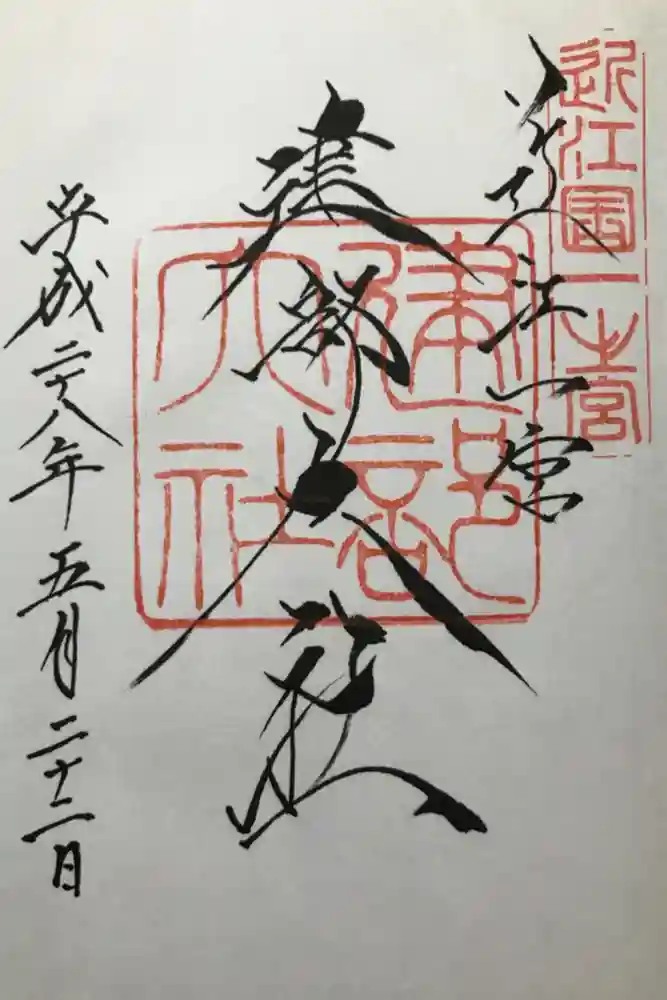 近江國一宮
近江一宮
建部大社
建部大社
平成二十八年五月二十二日